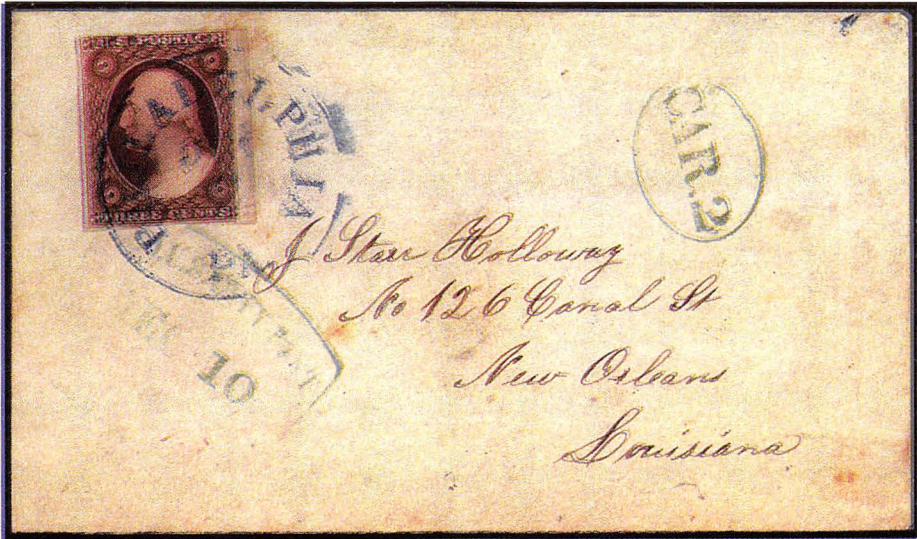 U.S. POSTAGE
THREE CENTS
PHILADELPHIA
CAR. 2
J Starr Holloway
No 126 Canal St
New Orleans
Louisiana
10